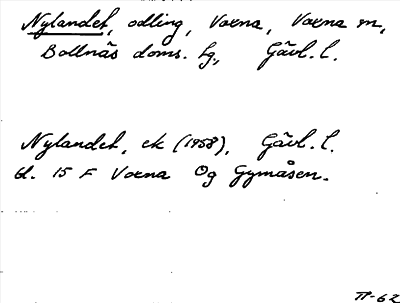 Nylandet, odling, Voxna, Voxna m,
Bollnäs doms. lg., Gävl. l.
Nylandet, ek (1958), Gävl. l.
bl. 15 F Voxna Og Gymåsen.
TP-62